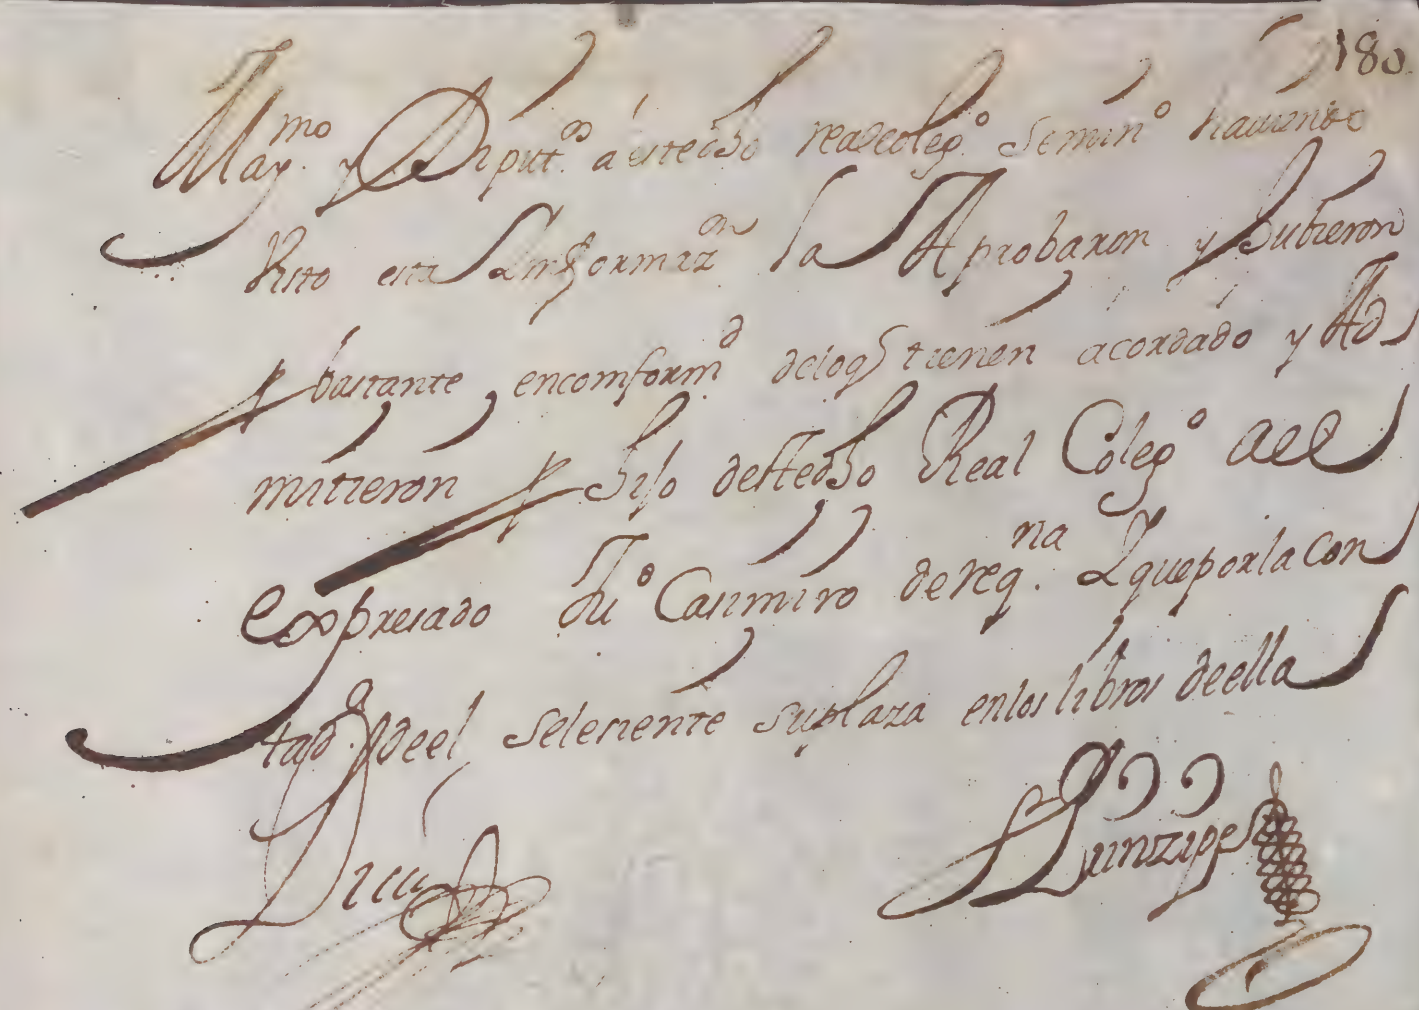 180
May.mo y Diput.on a estedho realcoleg.o Semin.o haviendo
Visto esta Informaz.on la Aprobaron y hubieron
p bastante encomform.d deloq tienen acordado y Ad
mitieron p hijo destedho Real Coleg.o ael
expresado Ju.o Casimiro dereq.na Y queporlacon
tad.a deel selesiente suplaza enlos libros deella